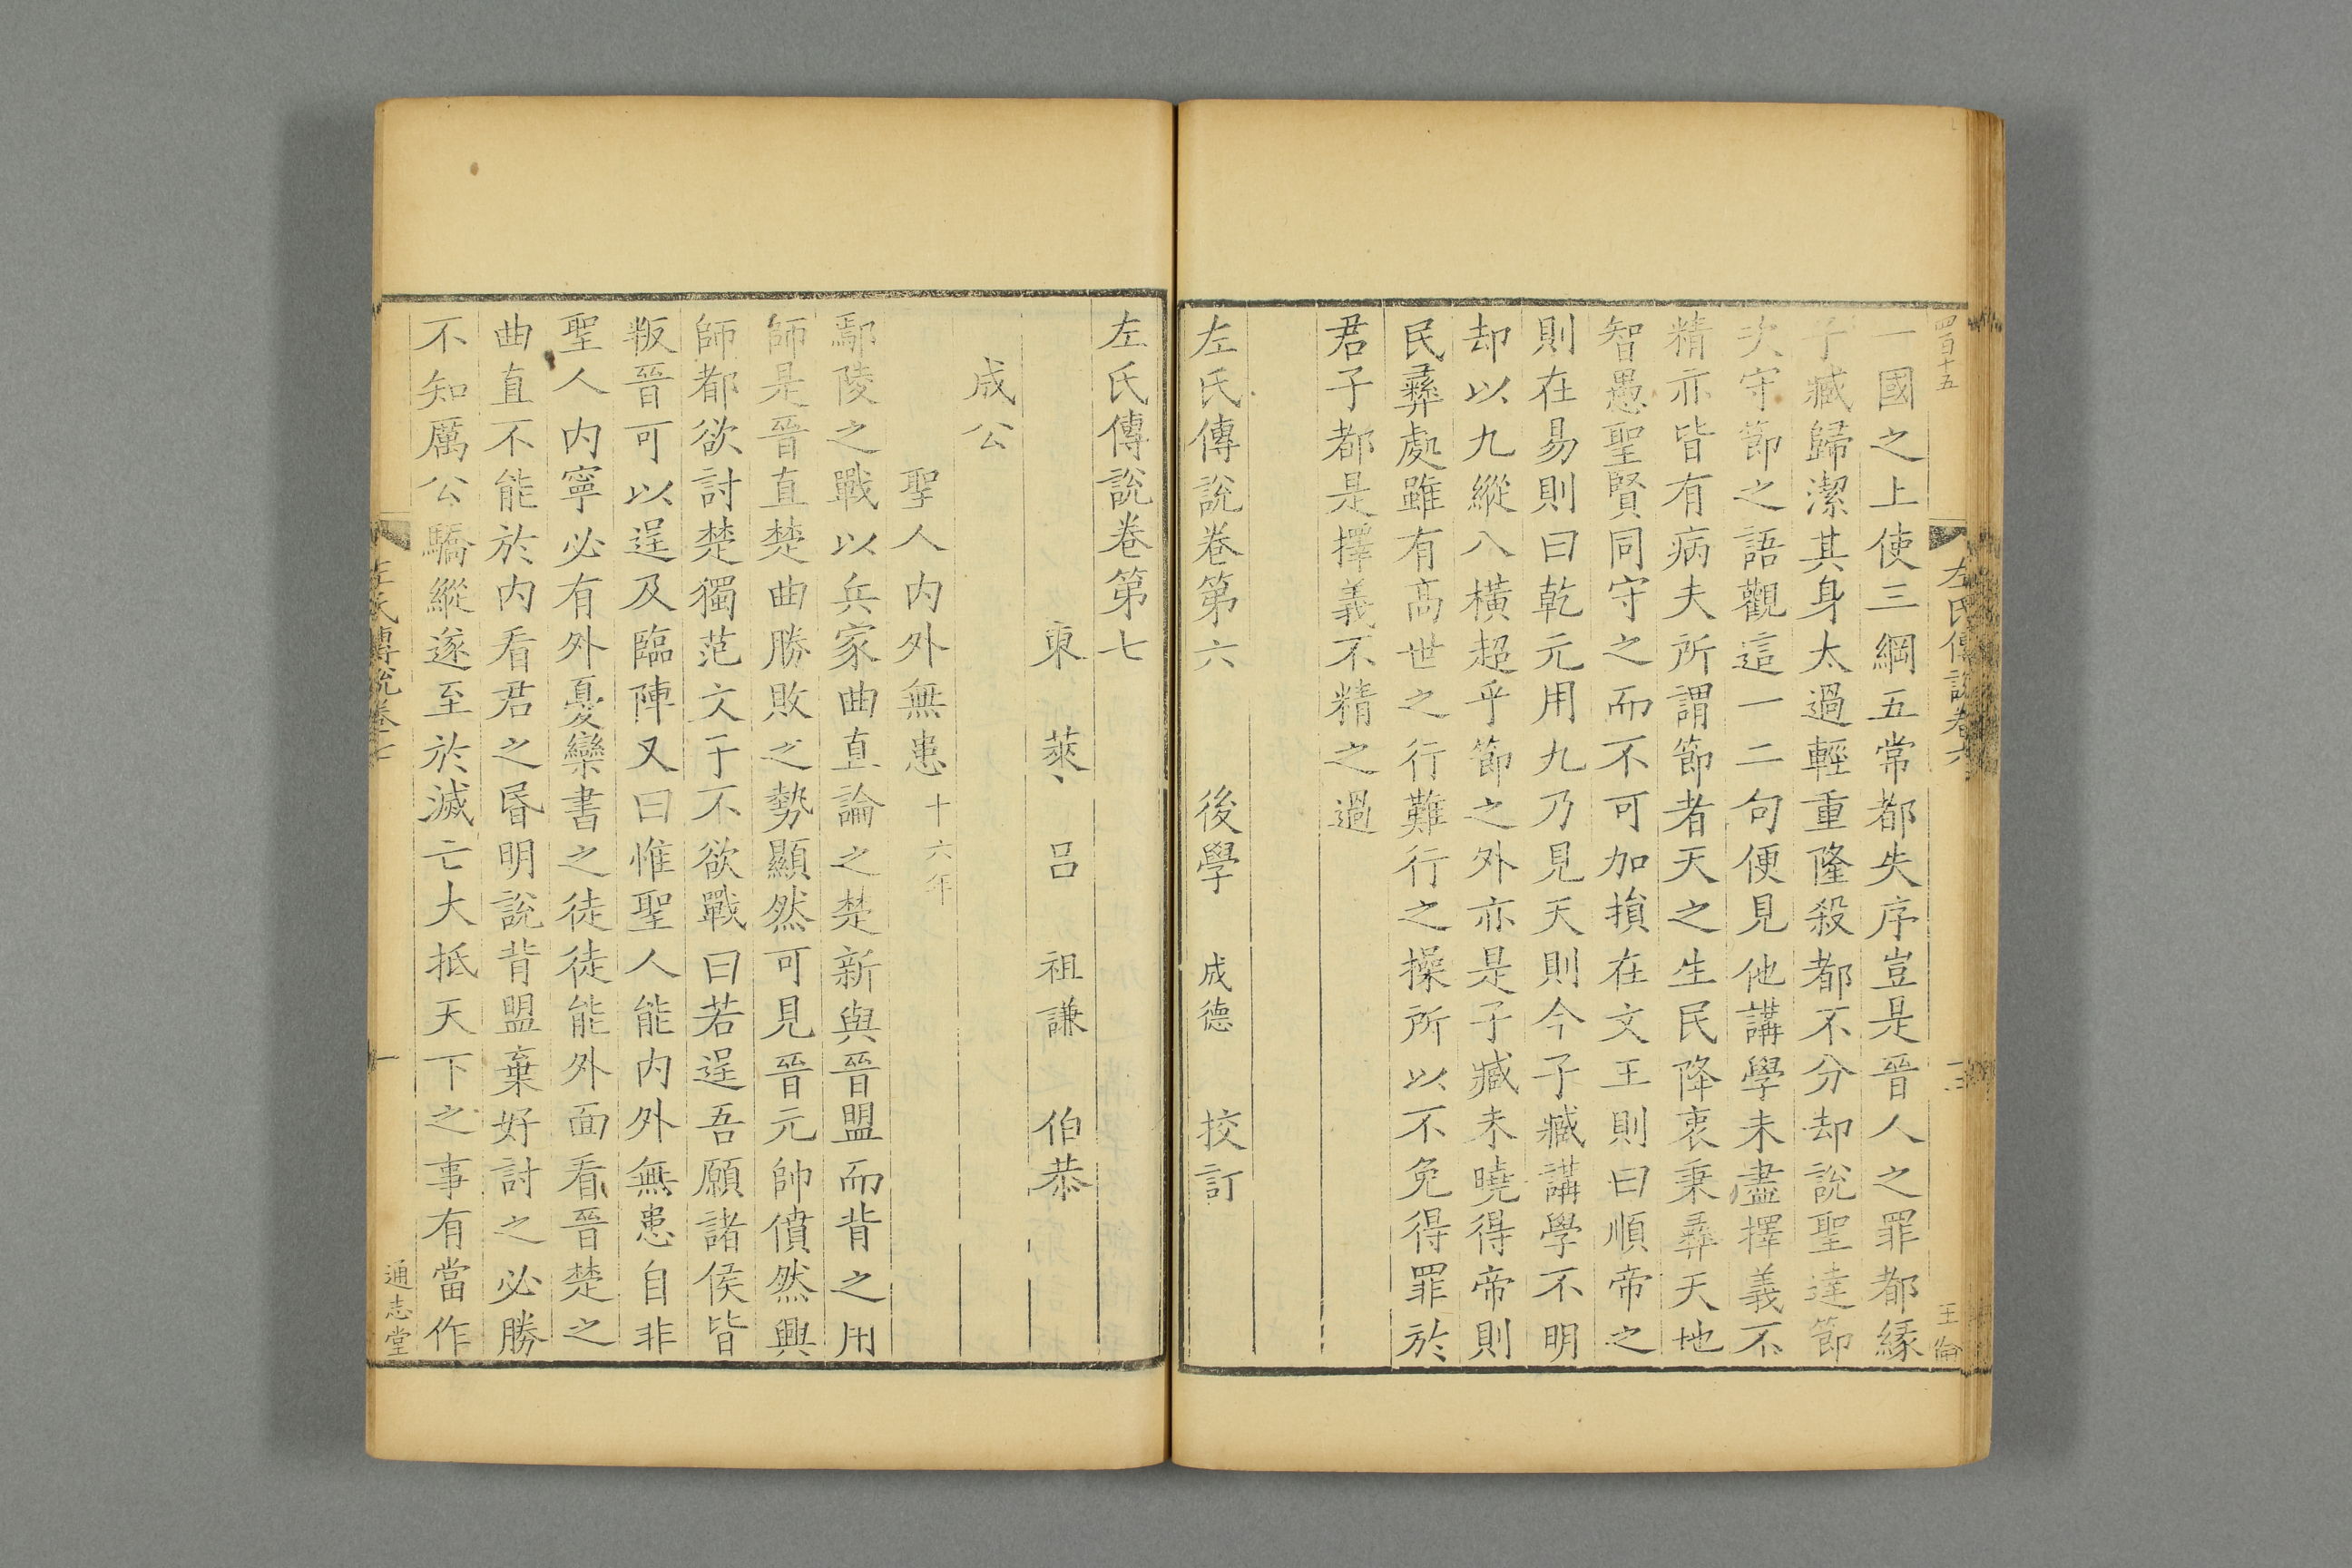 四百十五
左氏傳說卷六
王倫
一國之上使三綱五常都失序豈是晉人之罪都緣
子臧歸潔其身太過輕重隆殺都不分却說聖達節
次守節之語觀這一二句便見他講學未盡擇義不
精亦皆有病夫所謂節者天之生民降衷秉彝天地
智愚聖賢同守之而不可加損在文王則曰順帝之
則在易則曰乾元用九乃見天則今子臧講學不明
却以九縱八橫超乎節之外亦是子臧未曉得帝則
民彝處雖有高世之行難行之操所以不免得罪於
君子都是擇義不精之過
左氏傳說卷第六
後學 成德 挍訂
左氏傳說卷第七
東 萊 呂 祖謙 伯恭
成公
聖人內外無患十六年
鄢陵之戰以兵家曲直論之楚新與晉盟而背之用
師是晉直楚曲勝敗之勢顯然可見晉元帥僨然興
師都欲討楚獨范文子不欲戰曰若逞吾願諸侯皆
叛晉可以逞及臨陣又曰惟聖人能內外無患自非
聖人內寧必有外憂欒書之徒徒能外面看晉楚之
曲直不能於內看君之昬明說背盟棄好討之必勝
不知厲公驕縱遂至於滅亡大抵天下之事有當作
左氏傳說卷七
一
通志堂